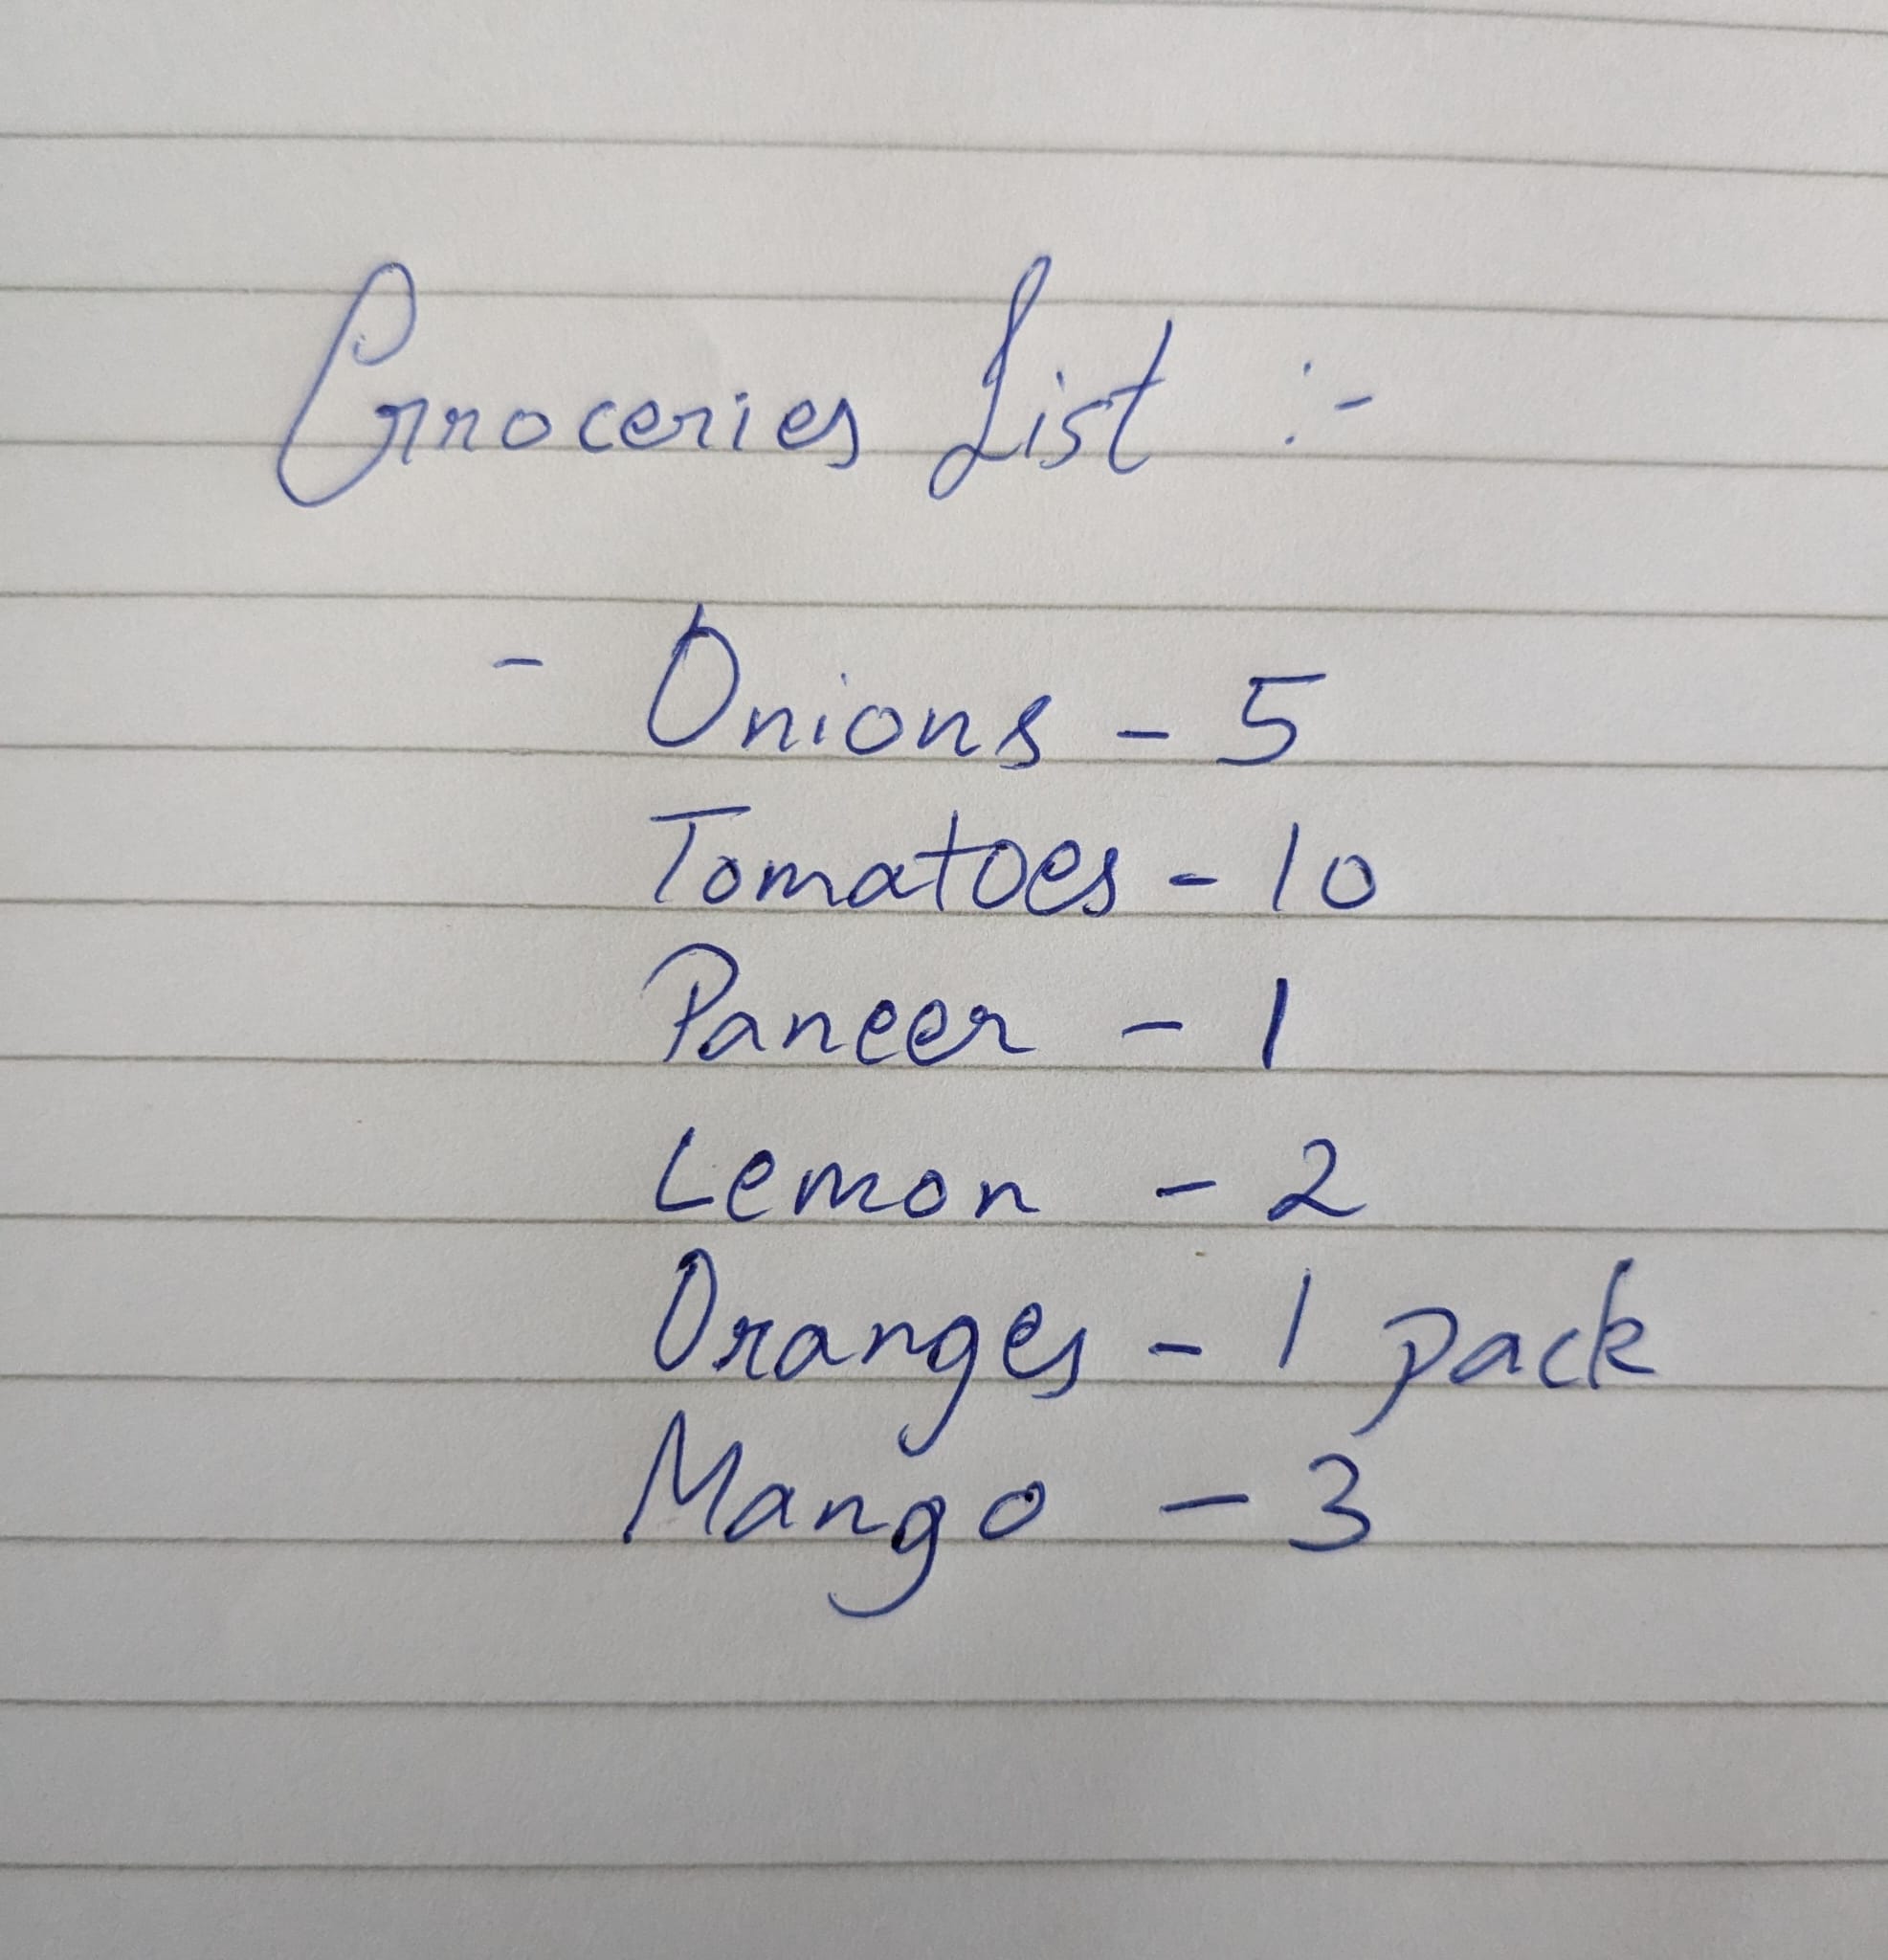 Groceries List :-
- Onions - 5
Tomatoes - 10
Paneer - 1
Lemon - 2
Oranges - 1 pack
Mango - 3